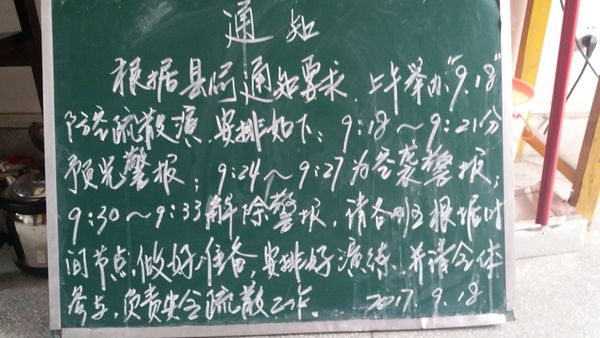 通知
根据县局通知要求,上午举办“9.18”
防空疏散演,安排如下:9:18~9:21分
预先警报;9:24~9:27为空袭警报;
9:30~9:33解除警报,请各班根据时
间节点,做好准备,安排好演练,并请全体
参与,负责安全疏散工作。 2017.9.18